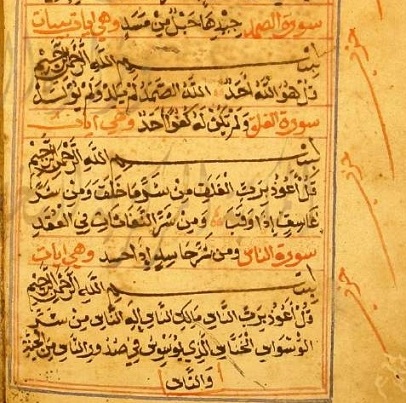 سورة الصمد جيدها حبل من مسد وهي ايات
بسم الله الرحمن الرحيم
قل هو الله احد الله الصمد لم يلد ولم يولد
سورة الفلق ولم يكن له كفوا احد وهي ايات
بسم الله الرحمن الرحيم
قل اعوذ برب الفلق من شر ما خلق ومن شر
غاسق اذا وقب ومن شر النفاثات في العقد
سورة الناس ومن شر حاسد اذا حسد وهي ايات
بسم الله الرحمن الرحيم
قل اعوذ برب الناس ملك الناس اله الناس من شر
الوسواس الخناس الذي يوسوس في صدور الناس من الجنة
والناس